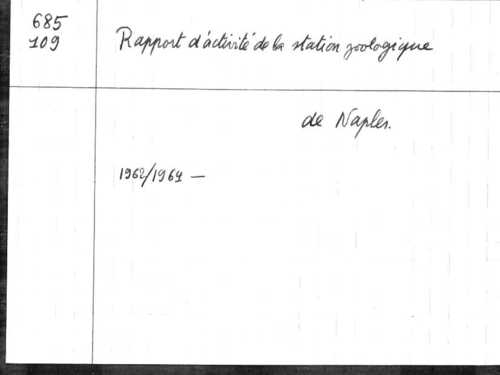 685
109
Rapport d'activité de la station zoologique
de Naples.
1962/1964 —